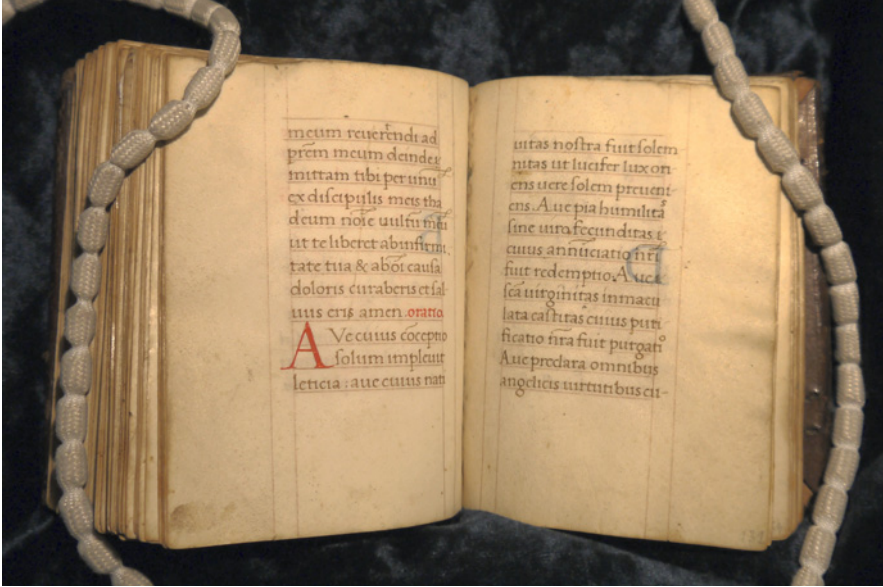 meum reuerendi ad
p̄rem meum deinde
mittam tibi per unū
ex discipulis meis tha
deum noīe uultū meū
ut te liberet ab infirmi
tate tua & ab oī causa
doloris curaberis et sal
uus eris amen. oratio.
AVe cuius cōceptio
solum impleuit
leticia: aue cuius nati
uitas nostra fuit solem
nitas ut lucifer lux ori
ens uere solem preueni
ens. Aue pia humilitas
sine uiro fecunditas
cuius annūciatio nr̄i
fuit redemptio. Aue
sc̄a uirginitas inmacu
lata castitas cuius puri
ficatio nr̄a fuit purgatio
Aue preclara omnibus
angelicis uirtutibus cu-